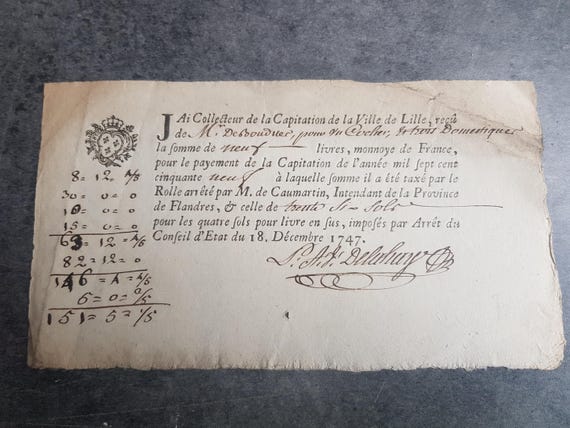 JAi Collecteur de la Capitation de la Ville de Lille, reçû
de M. Desbouduer, pour un Cocher, & trois Domestiques
la somme de neuf livres, monnoye de France,
pour le payement de la Capitation de l'année mil sept cent
cinquante neuf à laquelle somme il a été taxé par le
Rolle arrêté par M. de Caumartin, Intendant de la Province
de Flandres, & celle de trente Six Sols
pour les quatre sols pour livre en sus, imposés par Arrêt du
Conseil d'Etat du 18. Décembre 1747.
8 = 12
30 = 0 = 0
15 = 0 = 0
63 = 12
82 = 12 = 0
6 = 0
151 = 5